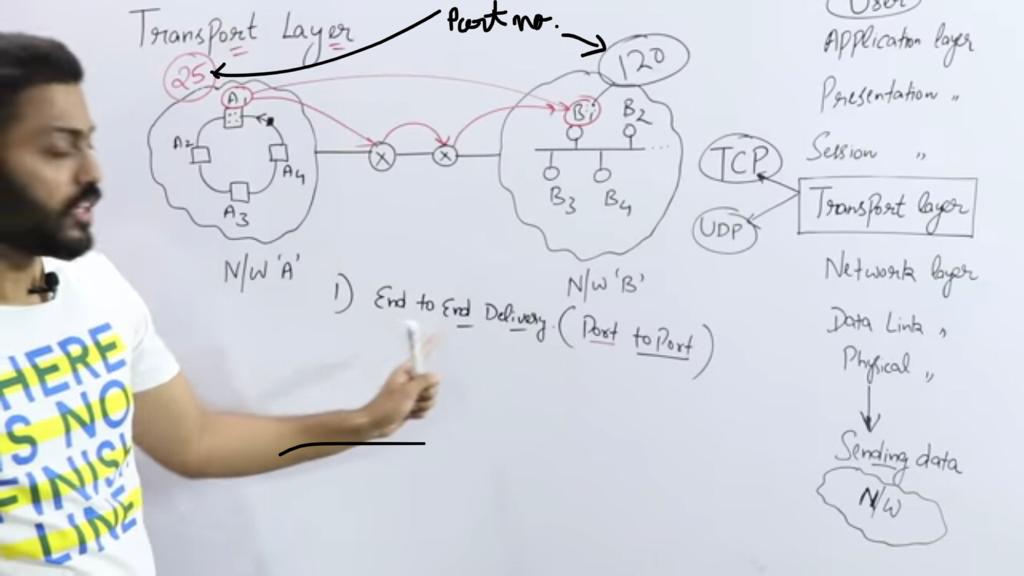 Transport Layer
Port no.
25
120
A1
A2
A4
A3
X
X
B1
B2
B3
B4
N/W 'A'
N/W 'B'
1) End to End Delivery. (Port to Port)
TCP
UDP
User
Application layer
Presentation "
Session "
Transport layer
Network layer
Data Link "
Physical "
Sending data
N/W
HERE
IS NO
FINISH
LINE